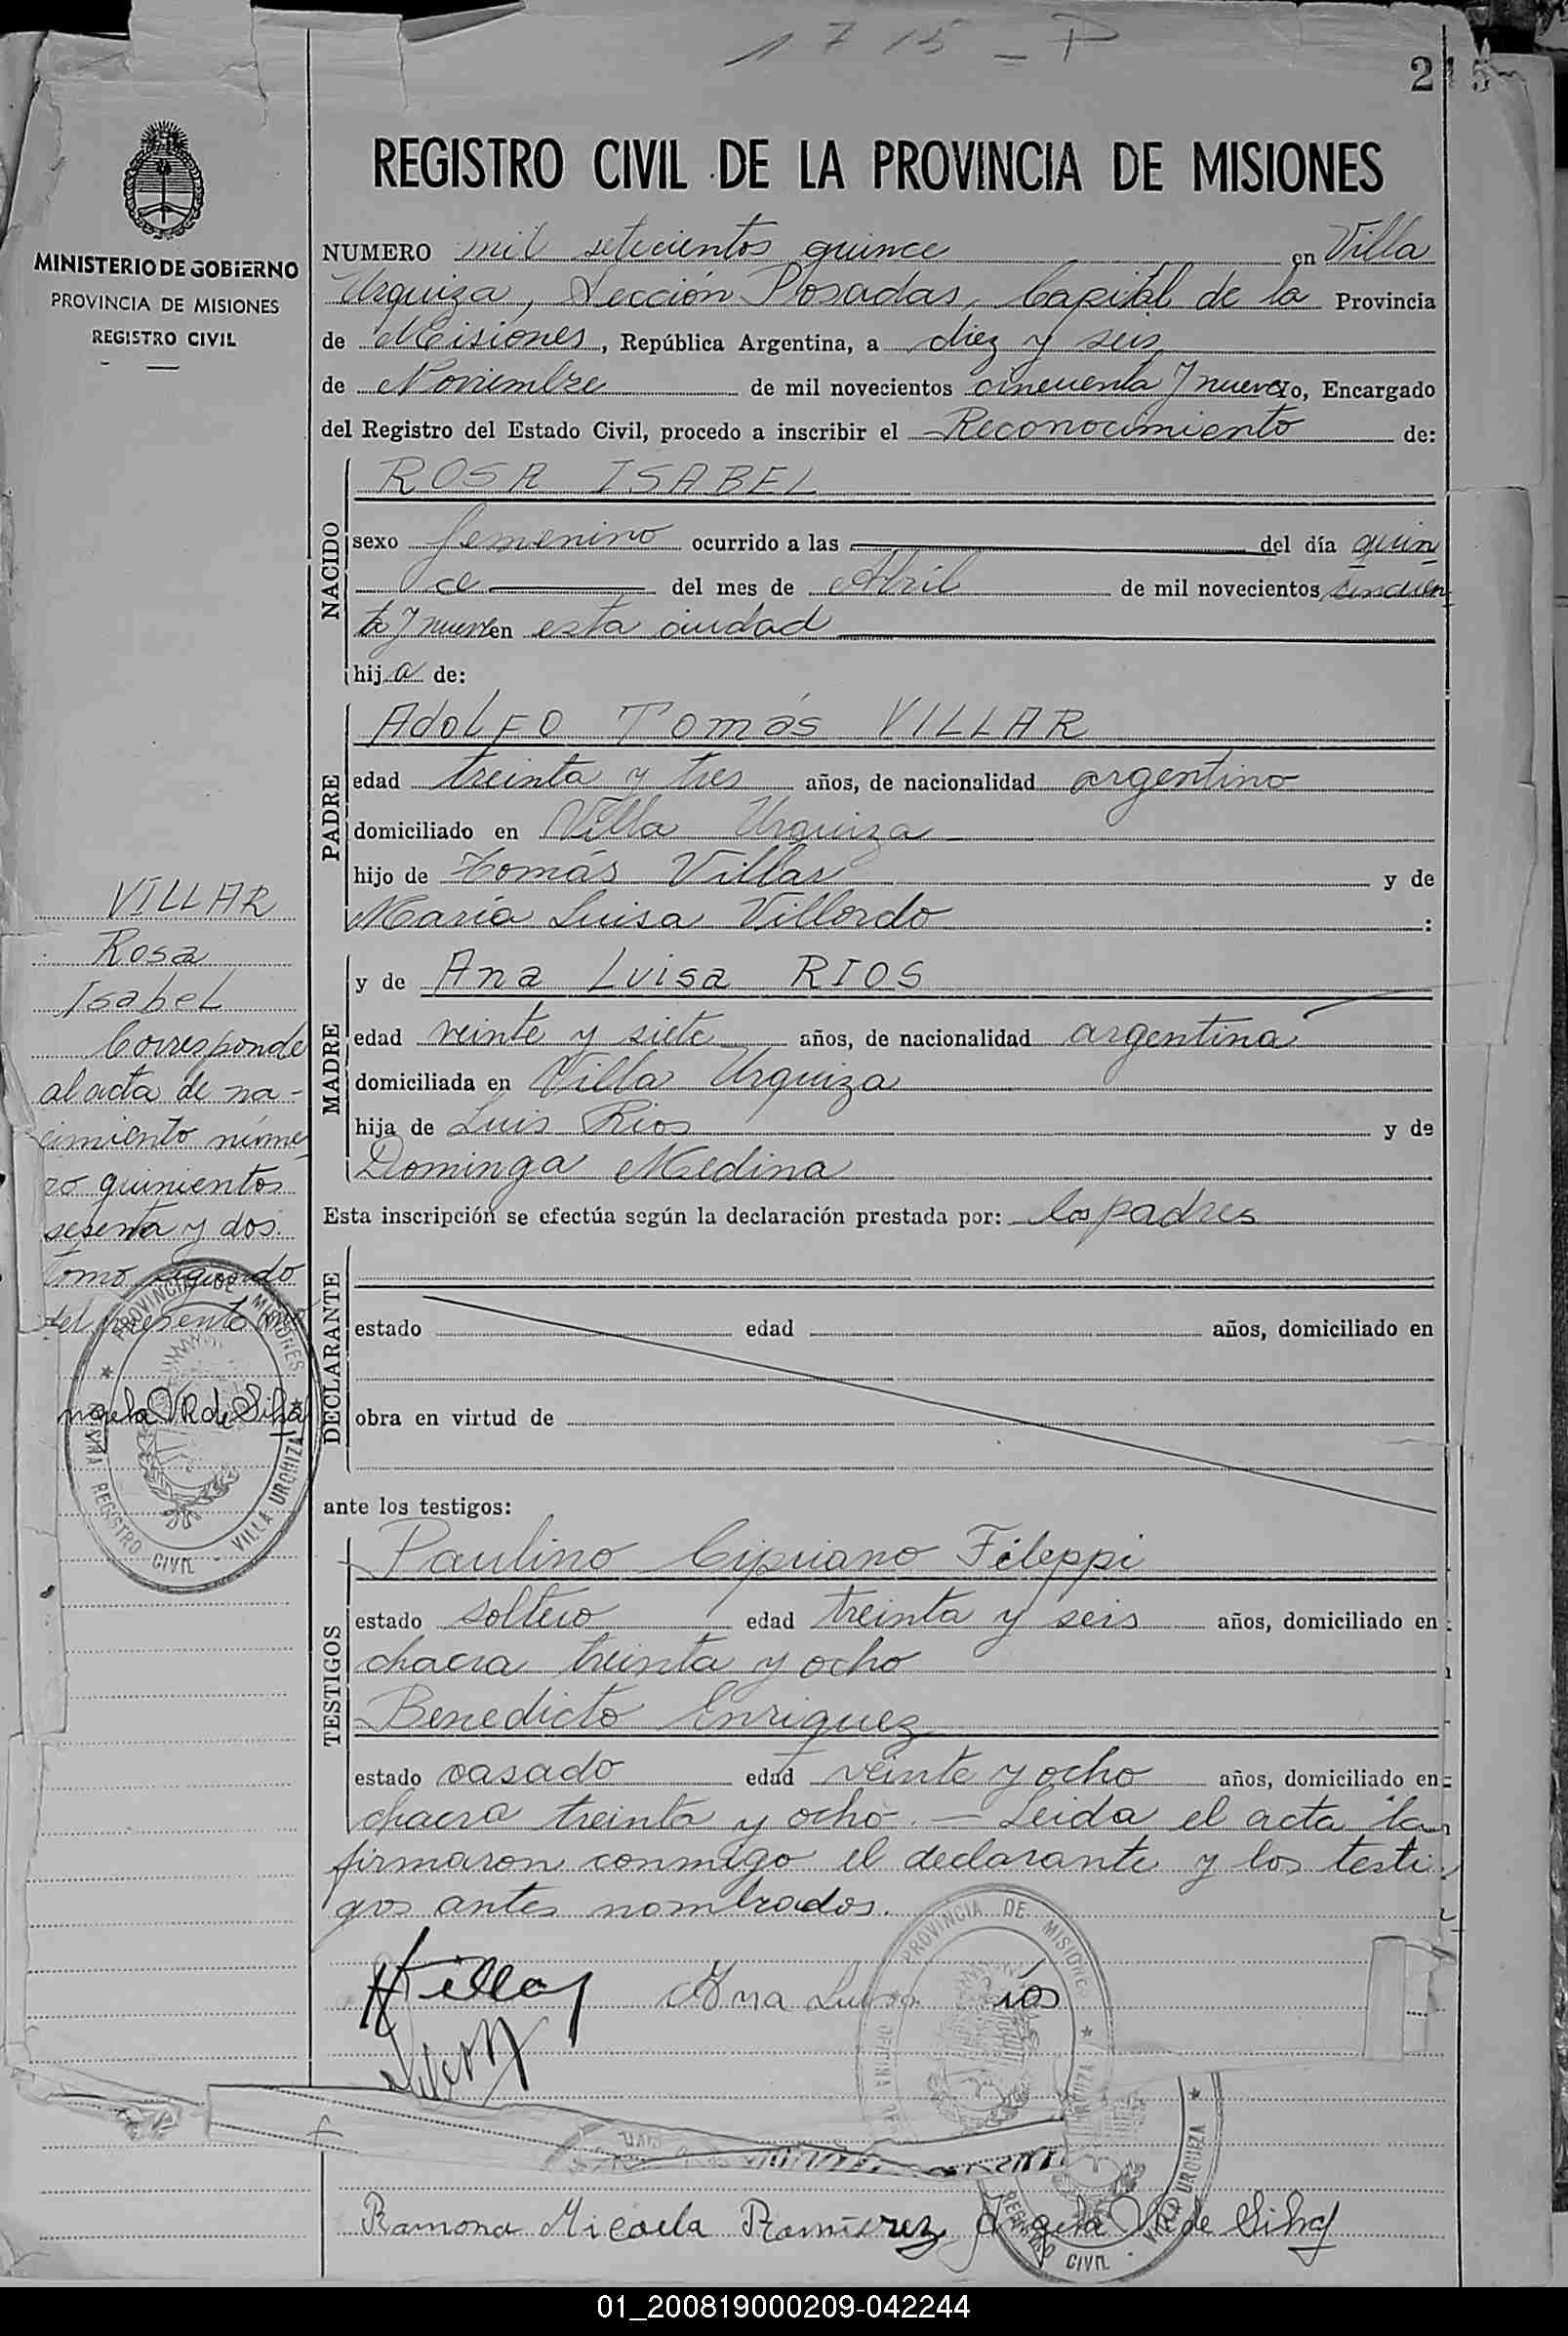 1715-P
215
REGISTRO CIVIL DE LA PROVINCIA DE MISIONES
MINISTERIO DE GOBIERNO
PROVINCIA DE MISIONES
REGISTRO CIVIL
NUMERO mil setecientos quince en Villa
Urquiza, Sección Posadas, Capital de la Provincia
de Misiones, República Argentina, a diez y seis
de Noviembre de mil novecientos cincuenta y nueve yo, Encargado
del Registro del Estado Civil, procedo a inscribir el Reconocimiento de:
NACIDO
ROSA ISABEL
sexo femenino ocurrido a las del día quin
ce del mes de Abril de mil novecientos cincuen
ta y nueve en esta ciudad
hija de:
PADRE
Adolfo Tomás VILLAR
edad treinta y tres años, de nacionalidad argentino
domiciliado en Villa Urquiza
hijo de Tomás Villar y de
María Luisa Villordo :
MADRE
y de Ana Luisa RIOS
edad veinte y siete años, de nacionalidad argentina
domiciliada en Villa Urquiza
hija de Luis Rios y de
Dominga Medina
Esta inscripción se efectúa según la declaración prestada por: los padres
DECLARANTE
estado edad años, domiciliado en
obra en virtud de
ante los testigos:
TESTIGOS
Paulino Cipriano Fileppi
estado soltero edad treinta y seis años, domiciliado en
chacra treinta y ocho
Benedicto Enriquez
estado casado edad veinte y ocho años, domiciliado en
chacra treinta y ocho. — Leida el acta la
firmaron conmigo el declarante y los testi
gos antes nombrados.
VILLAR
Rosa
Isabel
Corresponde
al acta de na-
cimiento núme
ro quinientos
sesenta y dos.
tomo segundo
del presente
PROVINCIA DE MISIONES
REGISTRO CIVIL - VILLA URQUIZA
ngela VR de Silva
AVillar Ana Luisa ios
PROVINCIA DE MISIONES
Ramona Micaela Ramírez Angela VR de Silva
REGISTRO CIVIL - VILLA URQUIZA
01_200819000209-042244